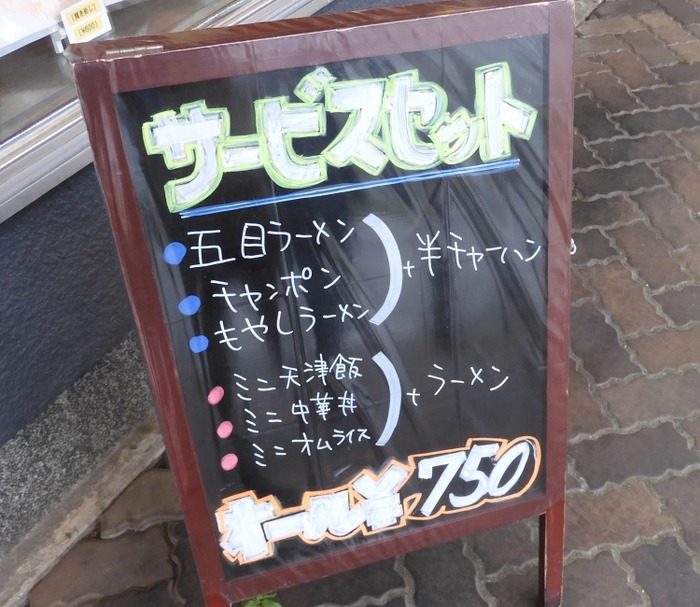 【焼きめし】
【¥600】
サービスセット
五目ラーメン
チャンポン
もやしラーメン
+半チャーハン
ミニ天津飯
ミニ中華丼
ミニオムライス
+ラーメン
オール¥750